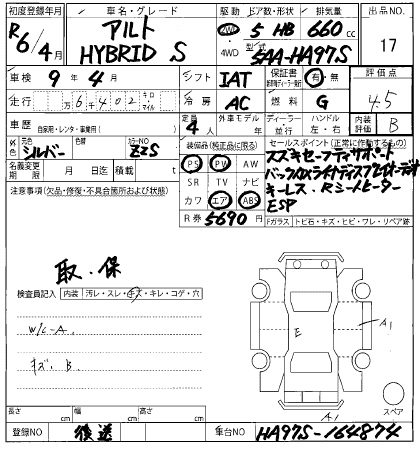 初度登録年月 車名・グレード 駆動 ドア数・形状 排気量 出品NO.
R6/4月 アルト HYBRID S 2WD 4WD 5 HB 660cc 17
型式 5AA-HA97S
車検 9年4月 シフト IAT 保証書 有・無 評価点 4.5
走行 万6千402 キロ マイル 冷房 AC 燃料 G
車歴 自家用・レンタ・事業用( ) 定員 4 外車モデル 年 ディーラー 並行 ハンドル 左・右 内装評価 B
外色 シルバー 色替 カラーNO ZZS 装備品(純正品に限る) セールスポイント(正常に作動するもの)
名義変更期限 月 日迄 積載 t PS PW AW スズキセーフティサポート
注意事項(欠品・修復・不具合箇所および状態) SR TV ナビ
カワ エア ABS キーレス・Rシートヒーター
R券 5690円 ESP
Fガラス トビ石・キズ・ヒビ・ワレ・リペア跡
取・保
検査員記入 内装 汚レ・スレ・キズ・キレ・コゲ・穴
W/C-A
キズ B
E
A1
A1
スペア
長さ cm 幅 cm 高さ cm
登録NO 後送 車台NO HA97S-164874